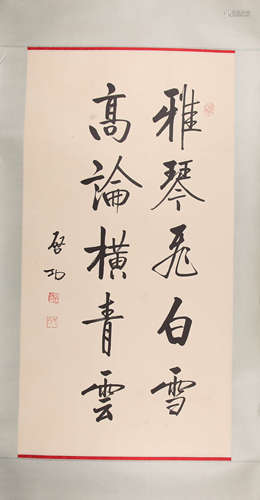 雅琴飛白雪
高論橫青雲
啓功